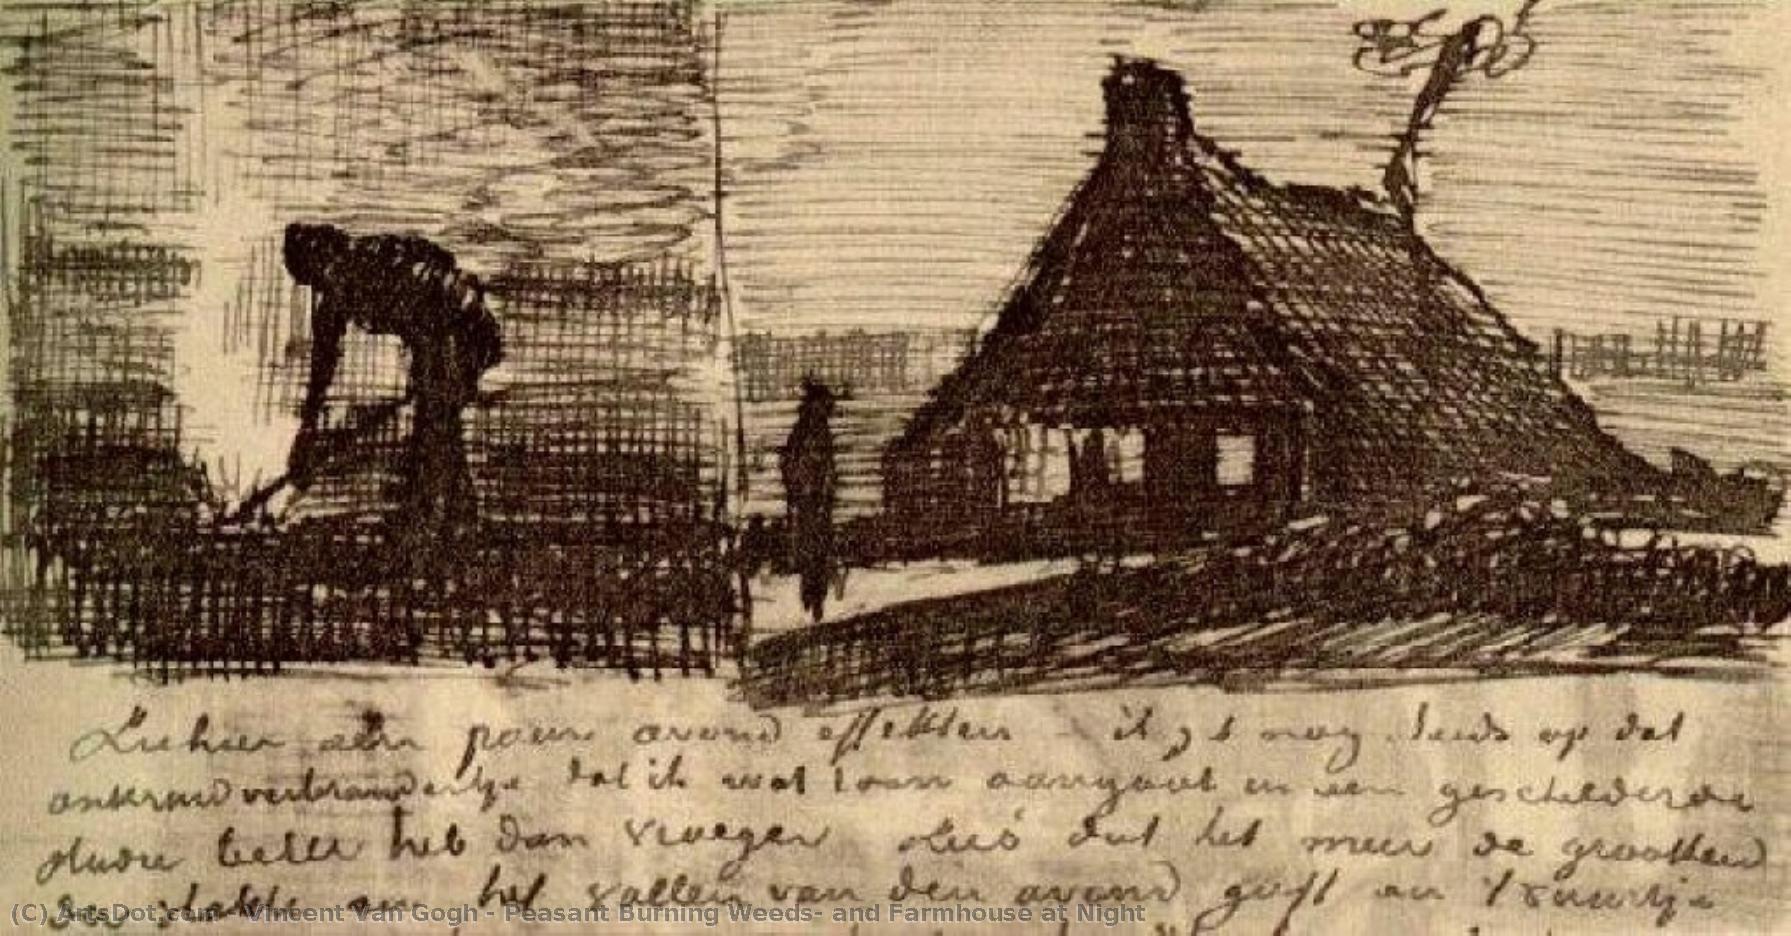 Ziehier een paar avond effekten – ik zit nog steeds op dat
onkruidverbrandertje dat ik wat toon aangaat in een geschilderde
studie beter heb dan vroeger dat het meer de grootheid
der vlakte en het vallen van den avond geeft en 't vuurtje
(C) ArtsDot.com- Vincent Van Gogh - Peasant Burning Weeds- and Farmhouse at Night